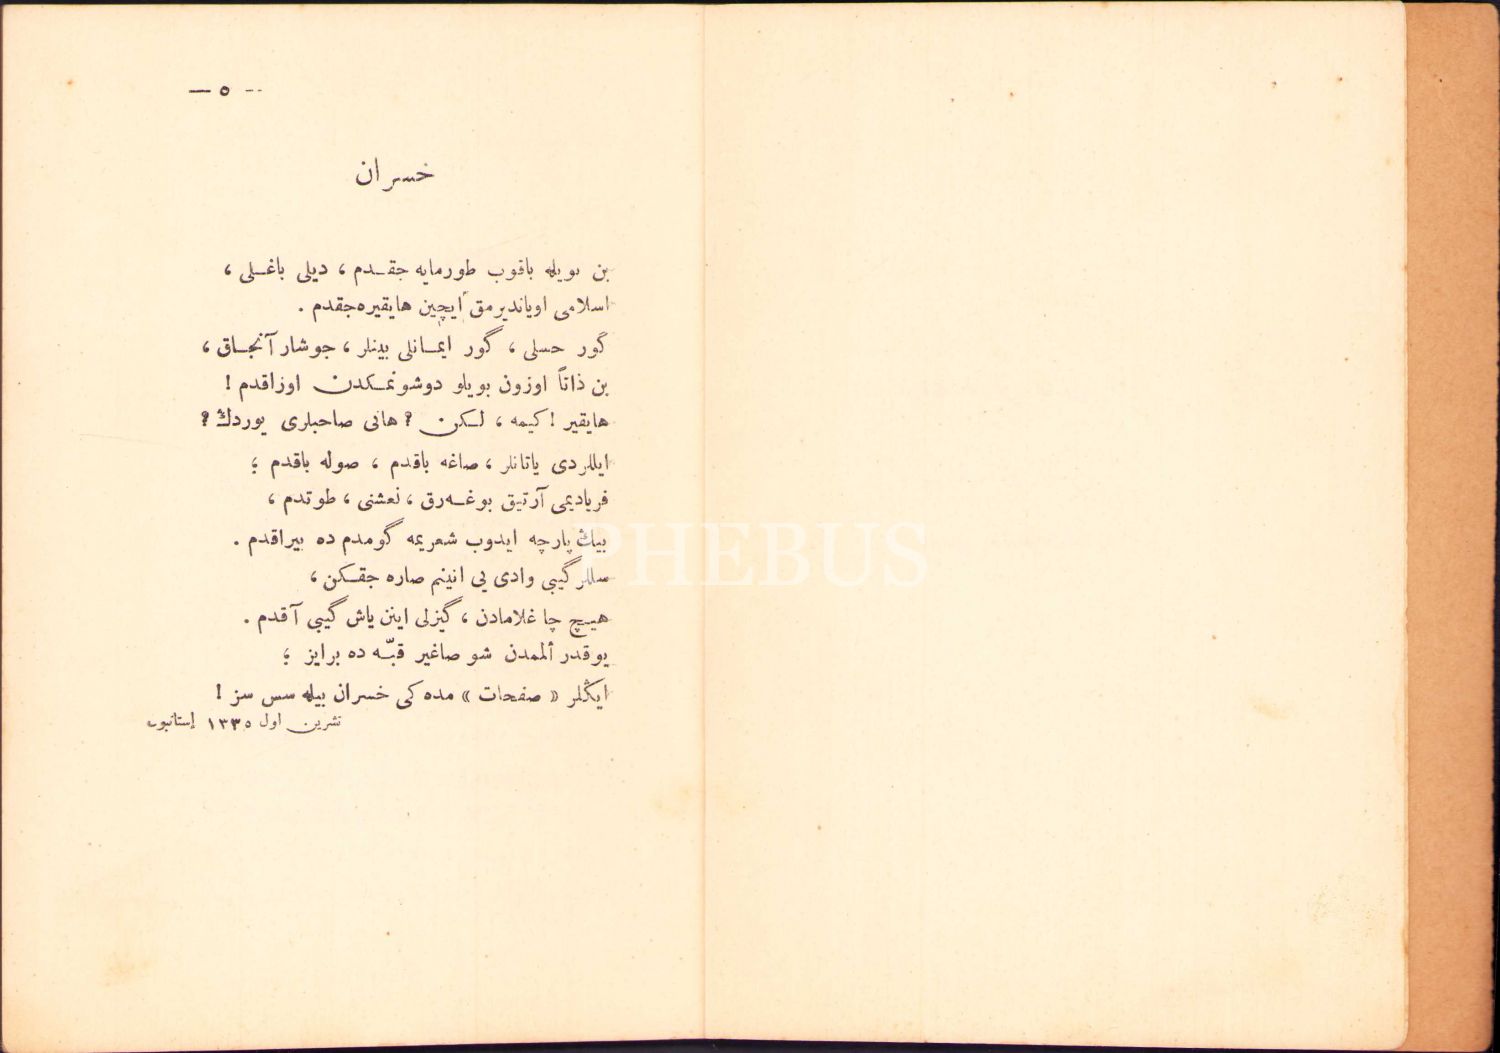 — ٥ —
خسران
بن بويله باقوب طورمايه جقـدم ، ديلى باغـلى ،
اسلامى اوياندیرمق ایچین هایقيره جقدم .
گور حسلى ، گور ايمـانلى بينلر ، جوشار آنجـاق ،
بن ذاتاً اوزون بويلو دوشونمـكدن اوزاقدم !
هايقير ! كيمه ، لـكن ؟ هانى صاحبلرى يوردك ؟
ايللردى ياتانلر ، صاغه باقدم ، صوله باقدم ؛
فرياديمى آرتيق بوغـه‌رق ، نعشنى ، طوتدم ،
بيك پارچه ايدوب شعريمه گومدم ده بيراقدم .
سللر گيبى وادى يى انينم صاره جقـكن ،
هيـچ چاغلامادن ، گيزلى اينن ياش گيبى آقدم .
يوقدر ألممدن شو صاغير قبّـه ده برايز ؛
ايڭلر « صفحات » مده كى خسران بيله سس سز !
تشرين اول ١٣٣٥ إستانبول
PHEBUS